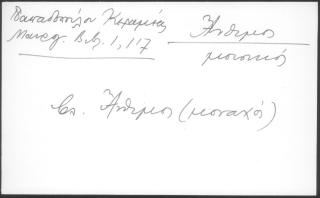 Παπαδοπούλου Κεραμέως
Μαυρογ. Βιβ. 1, 117
Ἄνθιμος
μουσικός
Βλ. Ἄνθιμος (μοναχός)